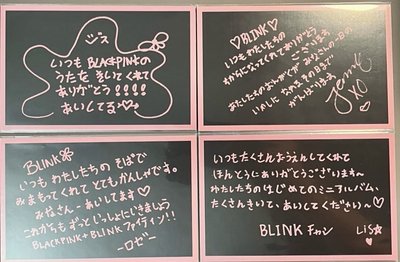 ジス
いつもBLACKPINKの
うたを きいてくれて
ありがとう!!!!
あいしてる♡
♡BLINK♡
いつもわたしたちの
ちからになってくれてありがとう
ございます
わたしたちのおんがくが みなさんの一日の
いやしに なれる その日まで
がんばります
Jennie
XO
BLINK
いつも わたしたちの そばで
みまもってくれて とても かんしゃです。
みなさん - あいしてます♡
これからも ずっと いっしょに いきましょう
BLACKPINK + BLINK ファイティン!!
-ロゼ-
いつもたくさんおうえんしてくれて
ほんとうにありがとうございます~
わたしたちの はじめての ミニアルバム、
たくさんきいて、あいしてください~♡
BLINK チャン
LiS☆